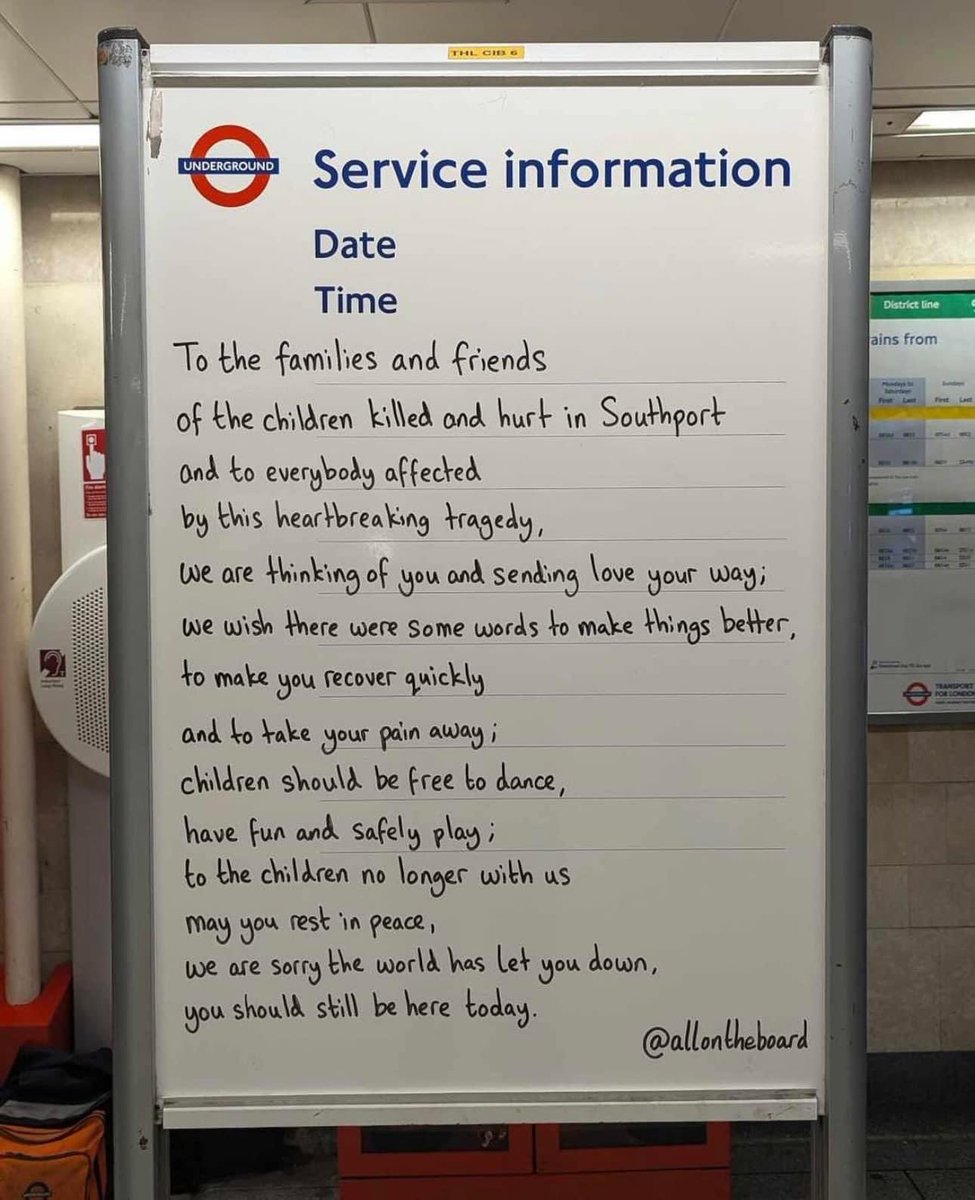 THL CIB 6
UNDERGROUND
Service information
Date
Time
To the families and friends
of the children killed and hurt in Southport
and to everybody affected
by this heartbreaking tragedy,
we are thinking of you and sending love your way;
we wish there were some words to make things better,
to make you recover quickly
and to take your pain away;
children should be free to dance,
have fun and safely play;
to the children no longer with us
may you rest in peace,
we are sorry the world has let you down,
you should still be here today.
@allontheboard
District line
ains from
Mondays to
Saturdays
Sundays
First Last
First Last
TRANSPORT
FOR LONDON